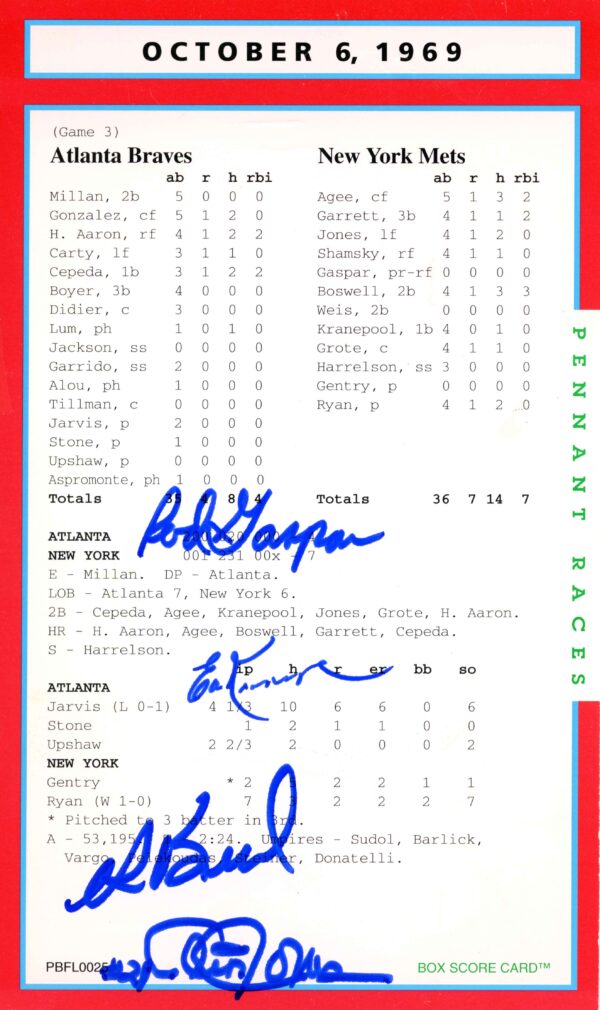 OCTOBER 6, 1969
(Game 3)
Atlanta Braves
ab r h rbi
Millan, 2b 5 0 0 0
Gonzalez, cf 5 1 2 0
H. Aaron, rf 4 1 2 2
Carty, lf 3 1 1 0
Cepeda, 1b 3 1 2 2
Boyer, 3b 4 0 0 0
Didier, c 3 0 0 0
Lum, ph 1 0 1 0
Jackson, ss 0 0 0 0
Garrido, ss 2 0 0 0
Alou, ph 1 0 0 0
Tillman, c 0 0 0 0
Jarvis, p 2 0 0 0
Stone, p 1 0 0 0
Upshaw, p 0 0 0 0
Aspromonte, ph 1 0 0 0
Totals 35 4 8 4
New York Mets
ab r h rbi
Agee, cf 5 1 3 2
Garrett, 3b 4 1 1 2
Jones, lf 4 1 2 0
Shamsky, rf 4 1 1 0
Gaspar, pr-rf 0 0 0 0
Boswell, 2b 4 1 3 3
Weis, 2b 0 0 0 0
Kranepool, 1b 4 0 1 0
Grote, c 4 1 1 0
Harrelson, ss 3 0 0 0
Gentry, p 0 0 0 0
Ryan, p 4 1 2 0
Totals 36 7 14 7
PENNANT RACES
Rod Gaspar
ATLANTA 200 020 000 - 4
NEW YORK 001 231 00x - 7
E - Millan. DP - Atlanta.
LOB - Atlanta 7, New York 6.
2B - Cepeda, Agee, Kranepool, Jones, Grote, H. Aaron.
HR - H. Aaron, Agee, Boswell, Garrett, Cepeda.
S - Harrelson.
ip h r er bb so
ATLANTA
Jarvis (L 0-1) 4 1/3 10 6 6 0 6
Stone 1 2 1 1 0 0
Upshaw 2 2/3 2 0 0 0 2
NEW YORK
Gentry * 2 2 2 1 1
Ryan (W 1-0) 7 3 2 2 2 7
* Pitched to 3 batter in 3rd.
A - 53,195 2:24. Umpires - Sudol, Barlick,
Vargo, Pelekoudas, Steiner, Donatelli.
PBFL0025
BOX SCORE CARD™